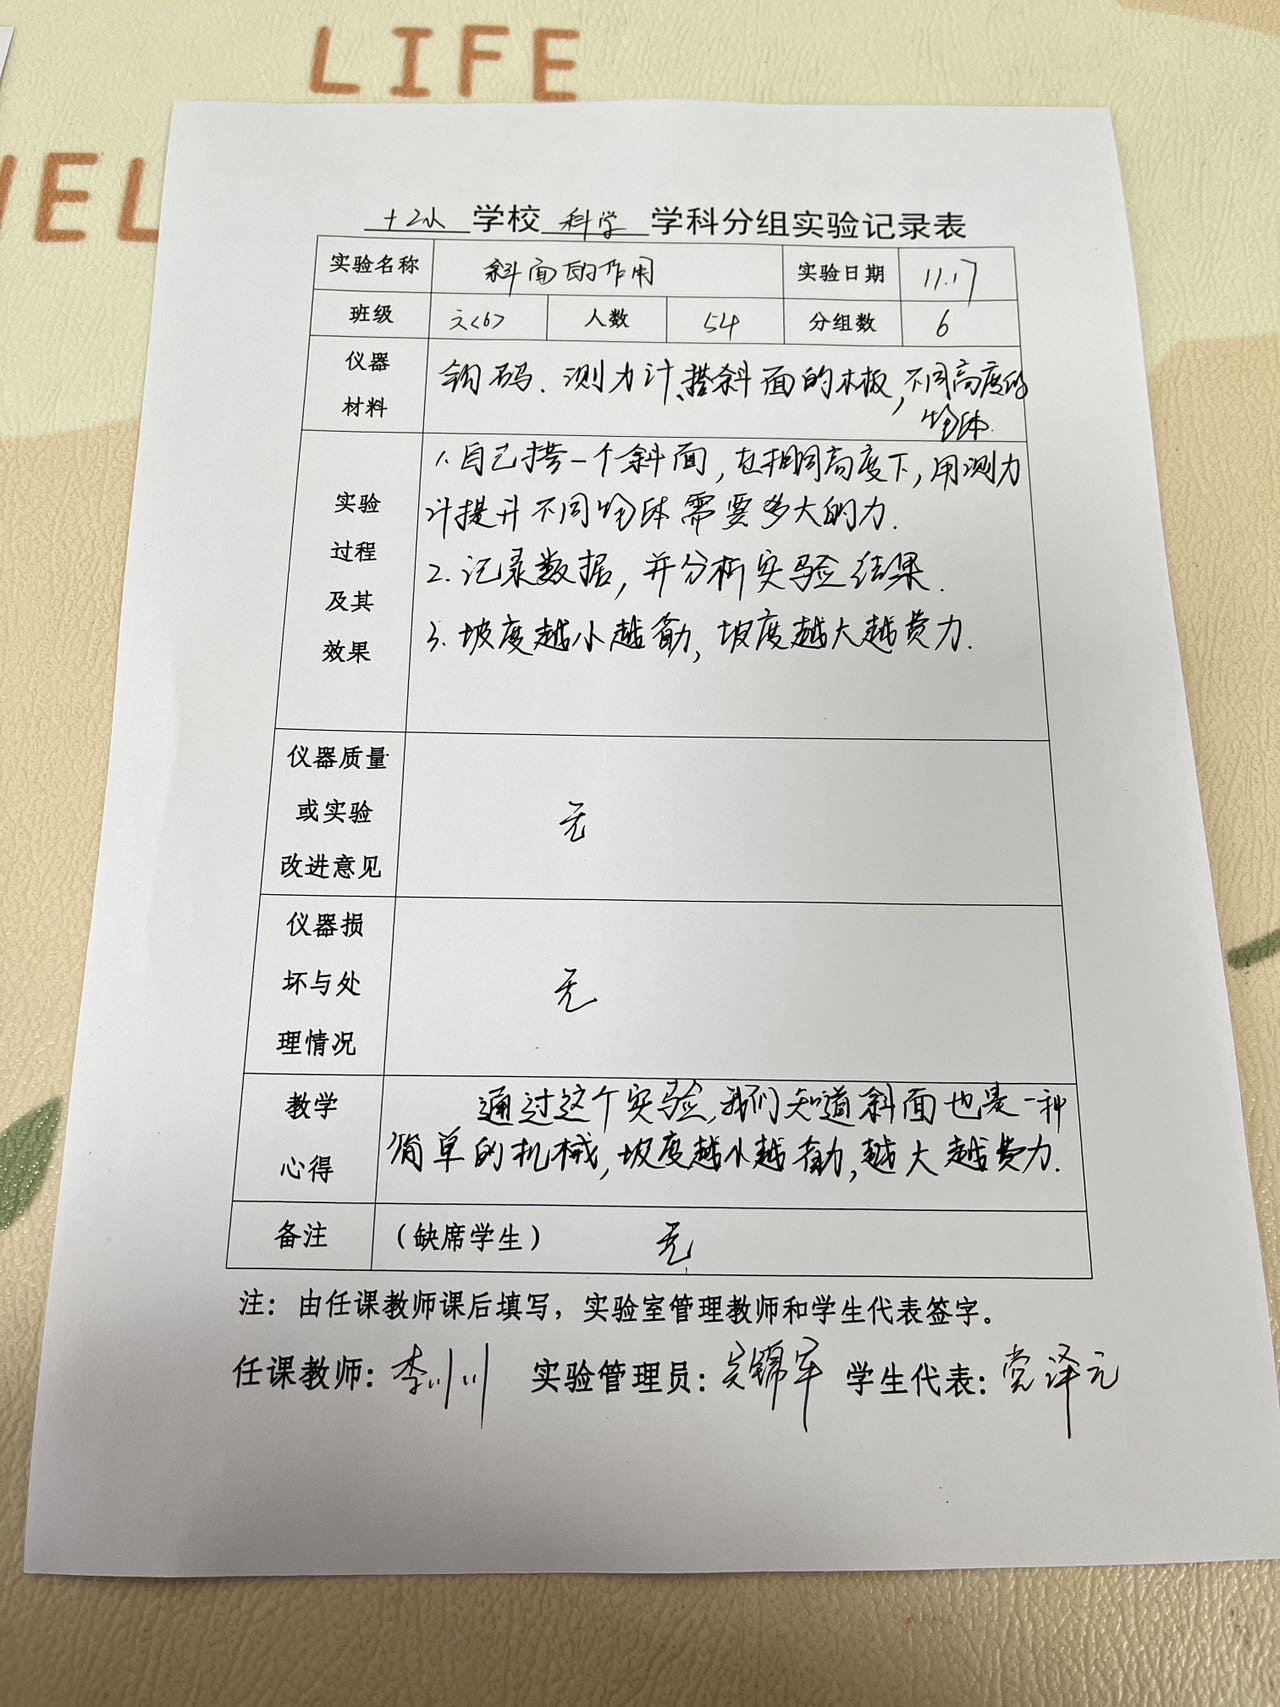 LIFE
NEL
十2小 学校 科学 学科分组实验记录表
实验名称 斜面的作用 实验日期 11.17
班级 六<6> 人数 54 分组数 6
仪器
材料
钩码、测力计、搭斜面的木板，不同高度的
物体.
实验
过程
及其
效果
1. 自己搭一个斜面，在相同高度下，用测力
计提升不同物体需要多大的力.
2. 记录数据，并分析实验结果.
3. 坡度越小越省力，坡度越大越费力.
仪器质量
或实验
改进意见
无
仪器损
坏与处
理情况
无
教学
心得
通过这个实验，我们知道斜面也是一种
简单的机械，坡度越小越省力，越大越费力.
备注 （缺席学生） 无
注：由任课教师课后填写，实验室管理教师和学生代表签字。
任课教师：李川川 实验管理员：锦军 学生代表：党泽元